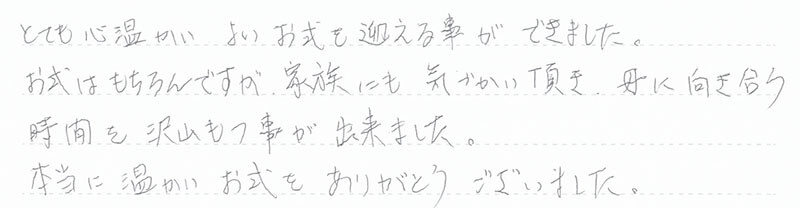 とても心温かい よいお式を迎える事ができました。
お式はもちろんですが、家族にも気づかい頂き、母に向き合う
時間を沢山もつ事が出来ました。
本当に温かいお式をありがとうございました。